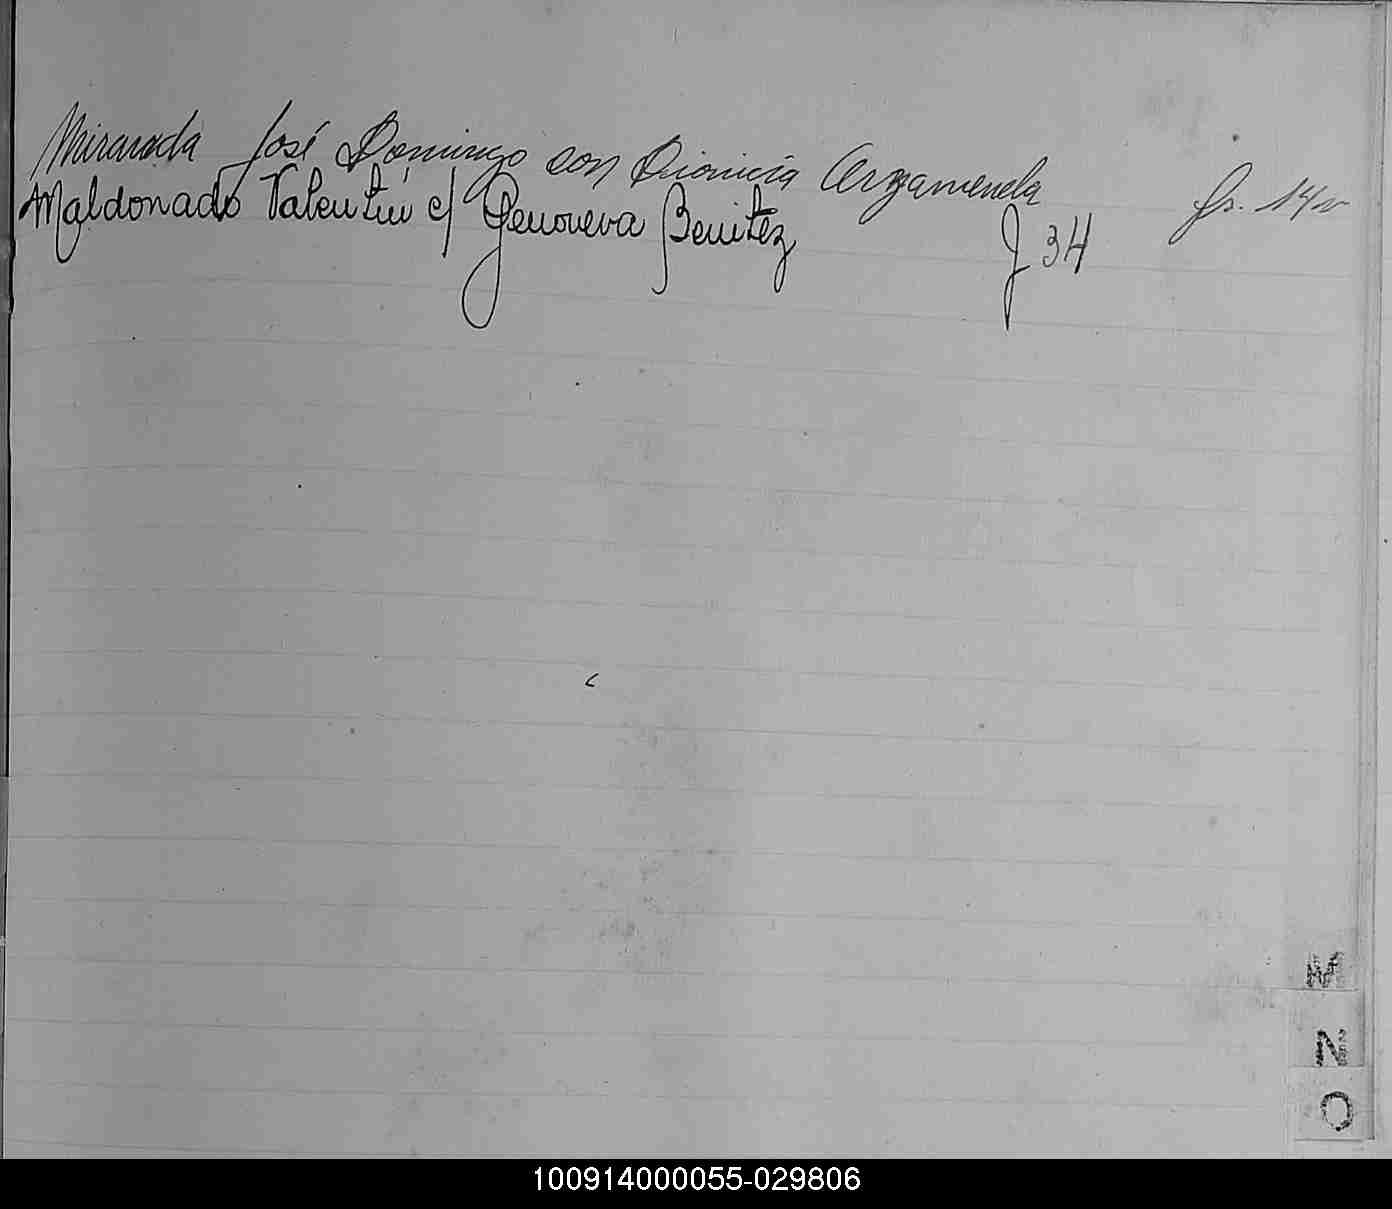 Miranda José Domingo con Dionicia Argamenda fs. 14 v
Maldonado Valentín c/ Genoveva Benitez J 34
M
N
O
100914000055-029806